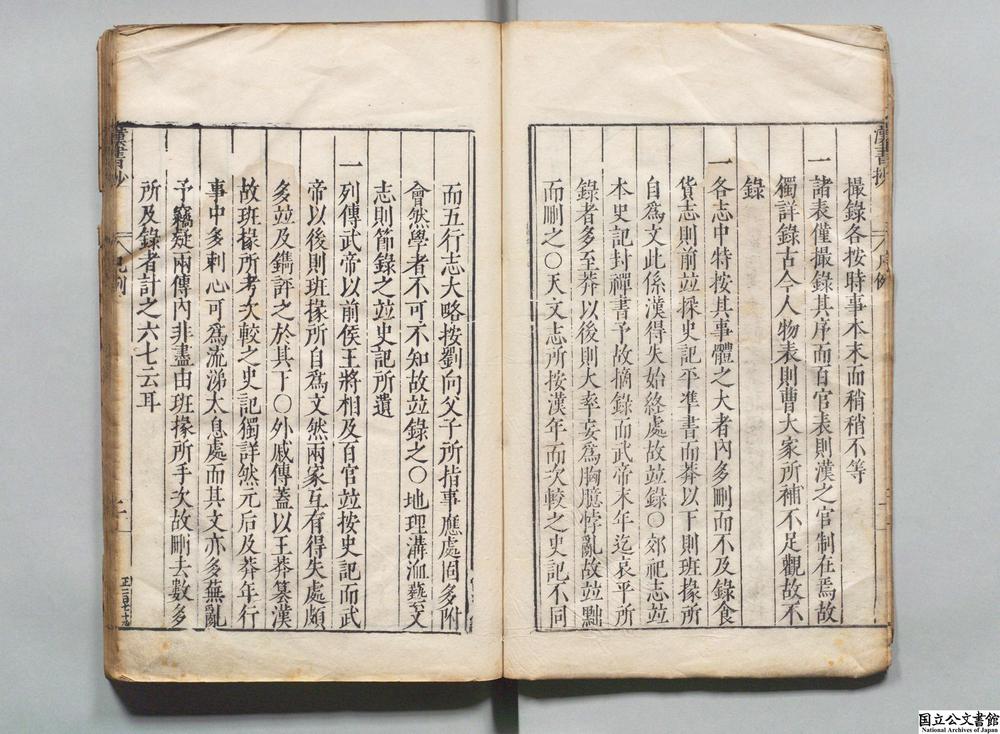 撮錄各按時事本末而稍稍不等
一諸表僅撮錄其序而百官表則漢之官制在焉故
獨詳錄古今人物表則曹大家所補不足觀故不
錄
一各志中特按其事體之大者內多刪而不及錄食
貨志則前竝採史記平準書而莽以下則班掾所
自爲文此係漢得失始終處故竝錄○郊祀志竝
本史記封禪書予故摘錄而武帝末年迄哀平所
錄者多至莽以後則大率妄爲胸臆悖亂故竝黜
而刪之○天文志所按漢年而次較之史記不同
而五行志大略按劉向父子所指事應處固多附
會然學者不可不知故竝錄之○地理溝洫藝文
志則節錄之竝史記所遺
一列傳武帝以前侯王將相及百官竝按史記而武
帝以後則班掾所自爲文然兩家互有得失處頗
多竝及鐫評之於其下○外戚傳蓋以王莽篡漢
故班掾所考次較之史記獨詳然元后及莽年行
事中多刺心可爲流涕太息處而其文亦多蕪亂
予竊疑兩傳內非盡由班掾所手次故刪去數多
所及錄者計之六七云耳
漢書抄
凡例
二
漢書抄
凡例
国立公文書館
National Archives of Japan